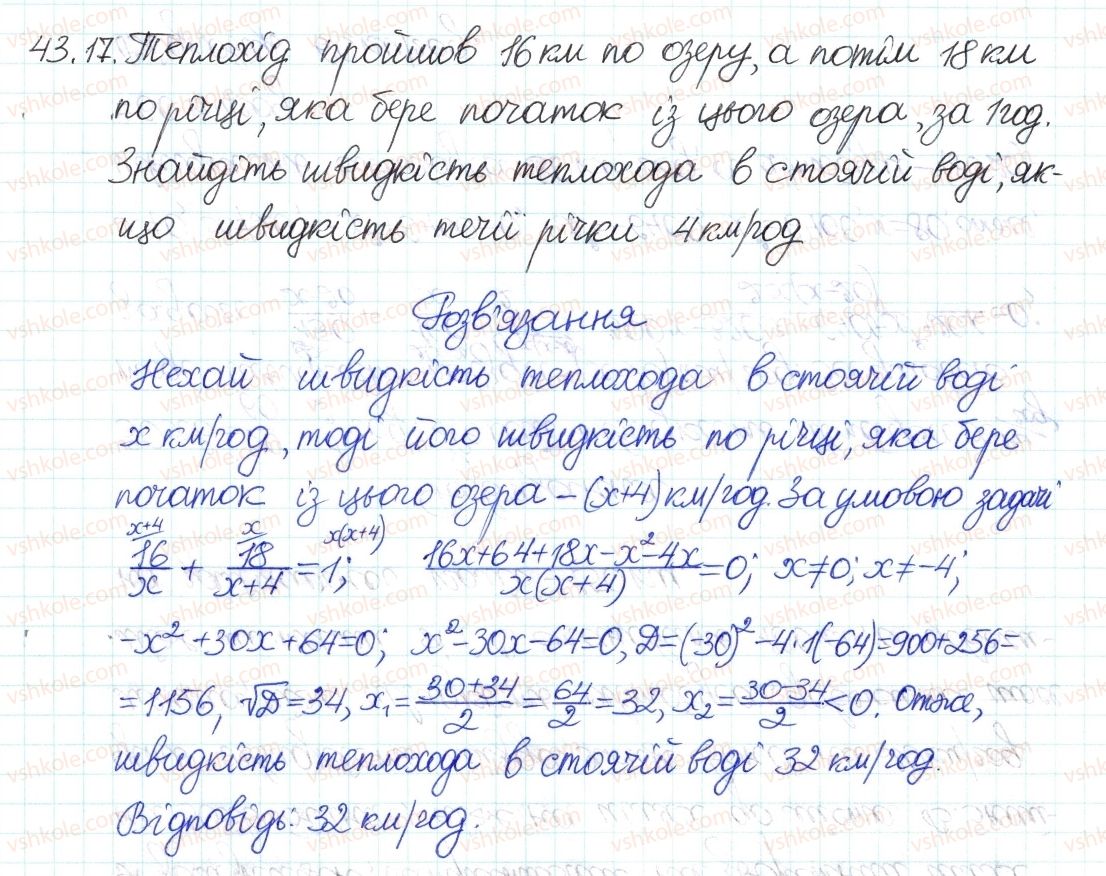 43.17. Теплохід пройшов 16 км по озеру, а потім 18 км
по річці, яка бере початок із цього озера, за 1 год.
Знайдіть швидкість теплохода в стоячій воді, як-
що швидкість течії річки 4 км/год
Розв'язання
Нехай швидкість теплохода в стоячій воді
x км/год, тоді його швидкість по річці, яка бере
початок із цього озера – (x+4) км/год. За умовою задачі
x+4 16/x + x 18/(x+4) = 1; x(x+4) (16x+64+18x-x²-4x)/(x(x+4)) = 0; x≠0; x≠-4;
-x²+30x+64=0; x²-30x-64=0, D=(-30)²-4·1(-64)=900+256=
=1156, √D=34, x₁=(30+34)/2=64/2=32, x₂=(30-34)/2<0. Отже,
швидкість теплохода в стоячій воді 32 км/год.
Відповідь: 32 км/год.
vshkole.com